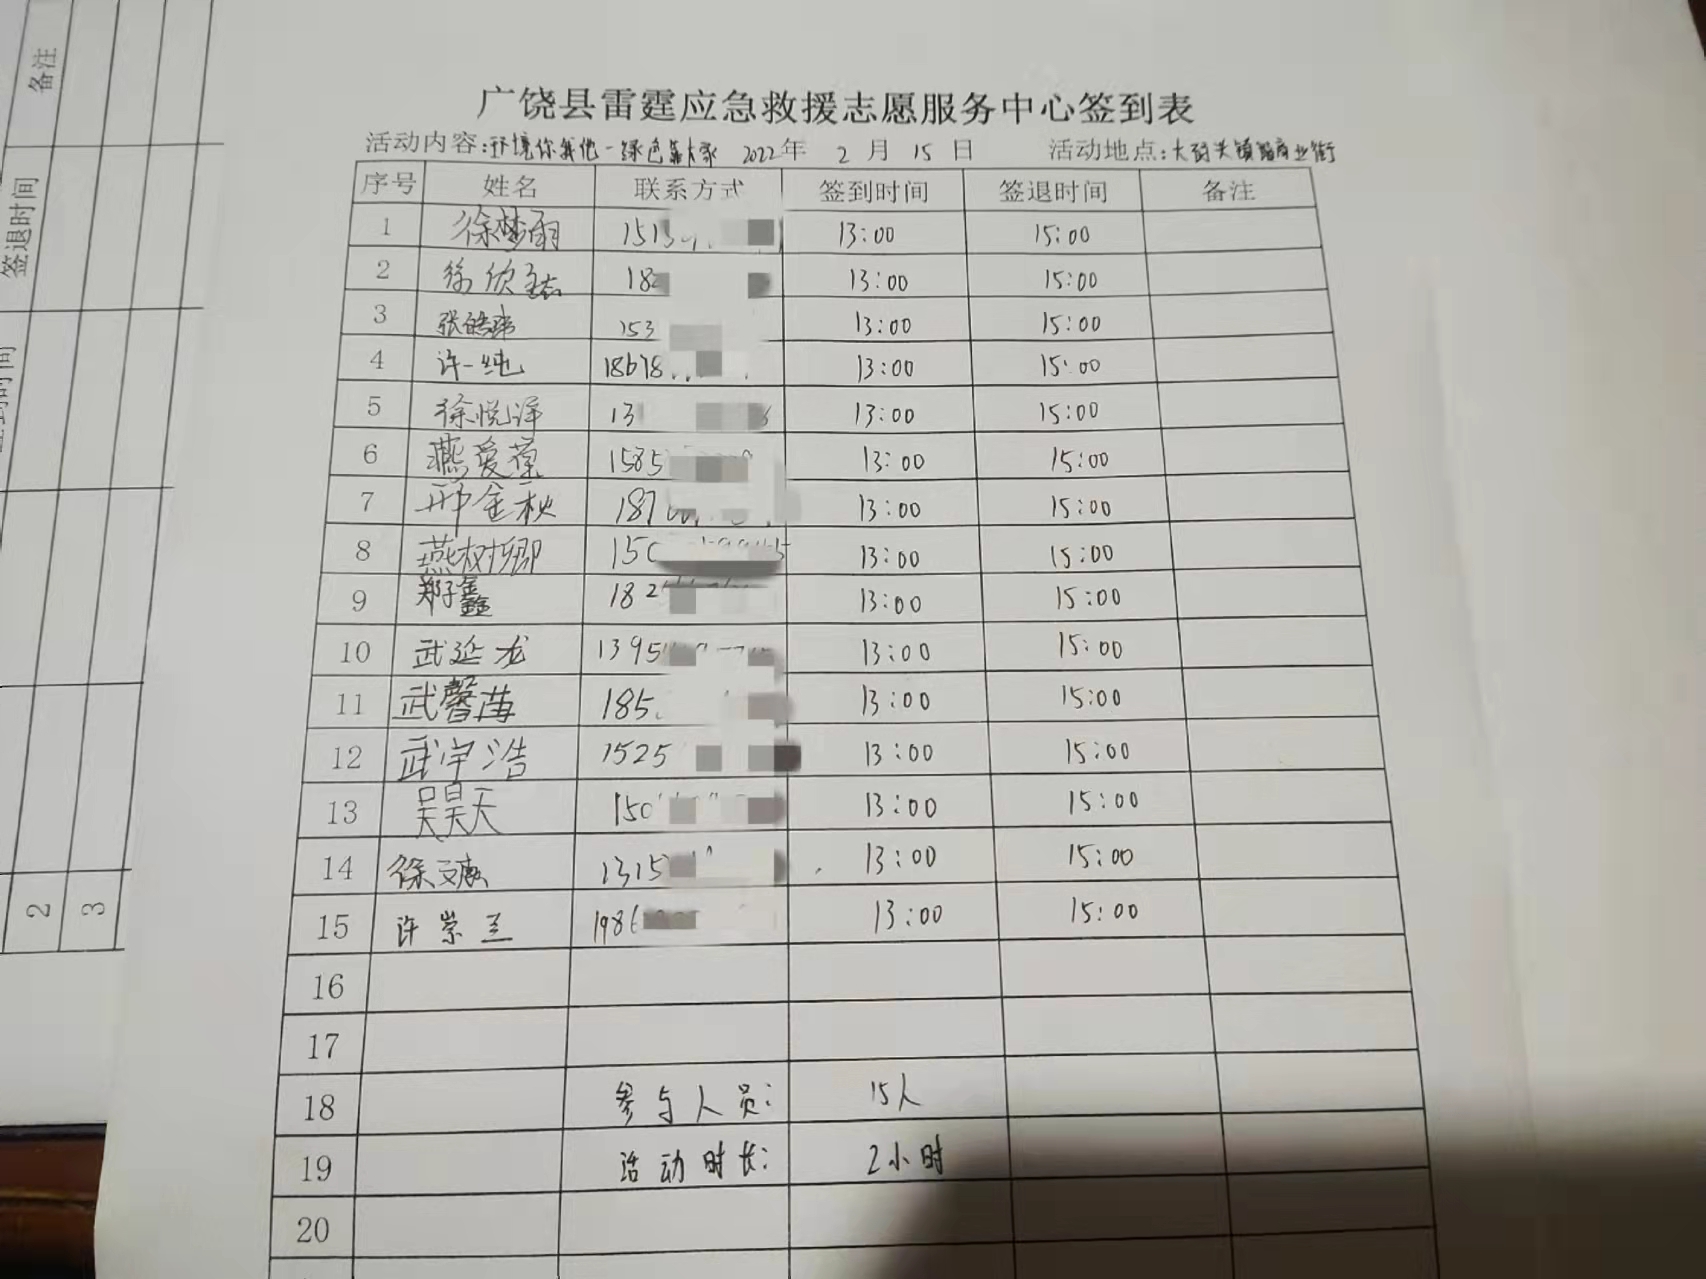 广饶县雷霆应急救援志愿服务中心签到表
活动内容:环境你我他一绿色靠大家 2022年 2 月 15 日 活动地点:大码头镇商业街
序号 姓名 联系方式 签到时间 签退时间 备注
1 徐梦雨 13:00 15:00
2 13:00 15:00
3 153 13:00 15:00
4 许一纯 18678 13:00 15:00
5 徐悦洋 13 13:00 15:00
6 燕爱葉 1585 13:00 15:00
7 邢金秋 187 13:00 15:00
8 燕树卿 150 13:00 15:00
9 郑子鑫 182 13:00 15:00
10 武延龙 1395 13:00 15:00
11 武馨苒 185 13:00 15:00
12 武宇浩 1525 13:00 15:00
13 吴昊天 150 13:00 15:00
14 徐文 1315 13:00 15:00
15 许崇兰 1986 13:00 15:00
16
17
18 参与人员: 15人
19 活动时长: 2小时
20
备注
签退时间
2
3